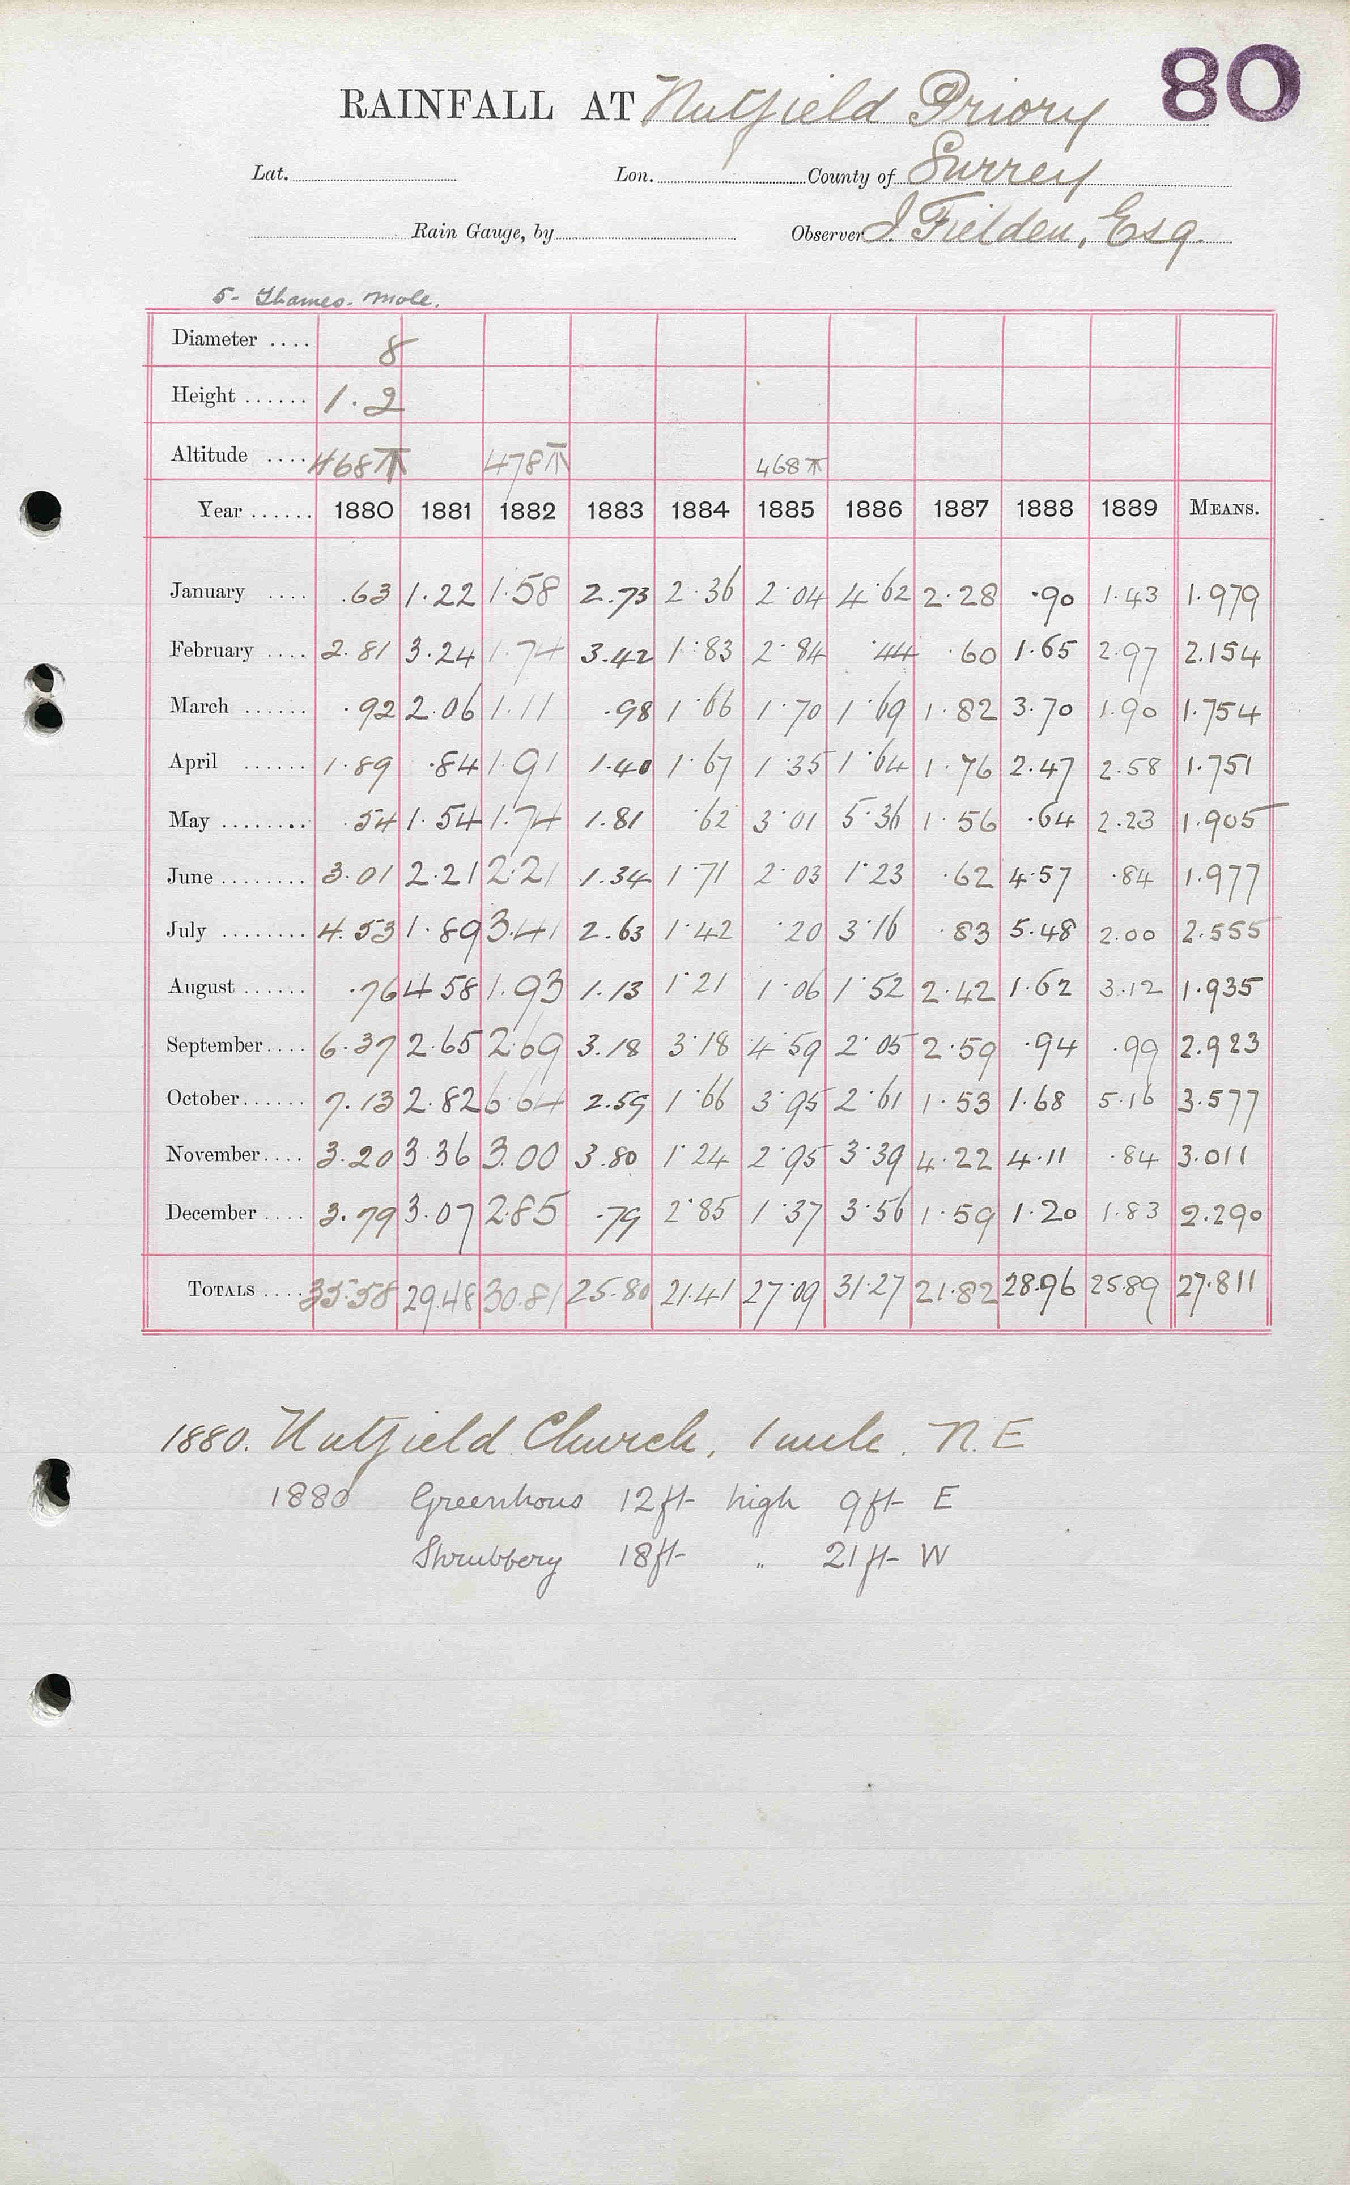 80
RAINFALL AT Nutfield Priory
Lat. Lon. County of Surrey
Rain Gauge, by Observer J. Fielden, Esq.
5- Thames. Mole.
Diameter .... 8
Height ...... 1.2
Altitude .... 468 478 468
Year ...... 1880 1881 1882 1883 1884 1885 1886 1887 1888 1889 MEANS.
January .... .63 1.22 1.58 2.73 2.36 2.04 4.62 2.28 .90 1.43 1.979
February .... 2.81 3.24 1.74 3.42 1.83 2.84 .44 .60 1.65 2.97 2.154
March ...... .92 2.06 1.11 .98 1.66 1.70 1.69 1.82 3.70 1.90 1.754
April ...... 1.89 .84 1.91 1.40 1.67 1.35 1.64 1.76 2.47 2.58 1.751
May ........ .54 1.54 1.74 1.81 .62 3.01 5.36 1.56 .64 2.23 1.905
June ........ 3.01 2.21 2.21 1.34 1.71 2.03 1.23 .62 4.57 .84 1.977
July ........ 4.53 1.89 3.41 2.63 1.42 .20 3.16 .83 5.48 2.00 2.555
August ...... .76 4.58 1.93 1.13 1.21 1.06 1.52 2.42 1.62 3.12 1.935
September .... 6.37 2.65 2.69 3.18 3.18 4.59 2.05 2.59 .94 .99 2.923
October ...... 7.13 2.82 6.64 2.59 1.66 3.95 2.61 1.53 1.68 5.16 3.577
November .... 3.20 3.36 3.00 3.80 1.24 2.95 3.39 4.22 4.11 .84 3.011
December .... 3.79 3.07 2.85 .79 2.85 1.37 3.56 1.59 1.20 1.83 2.290
TOTALS .... 35.58 29.48 30.81 25.80 21.41 27.09 31.27 21.82 28.96 25.89 27.811
1880. Nutfield Church, 1 mile, N.E
1880 Greenhous 12ft high 9ft E
Shrubbery 18ft " 21ft W